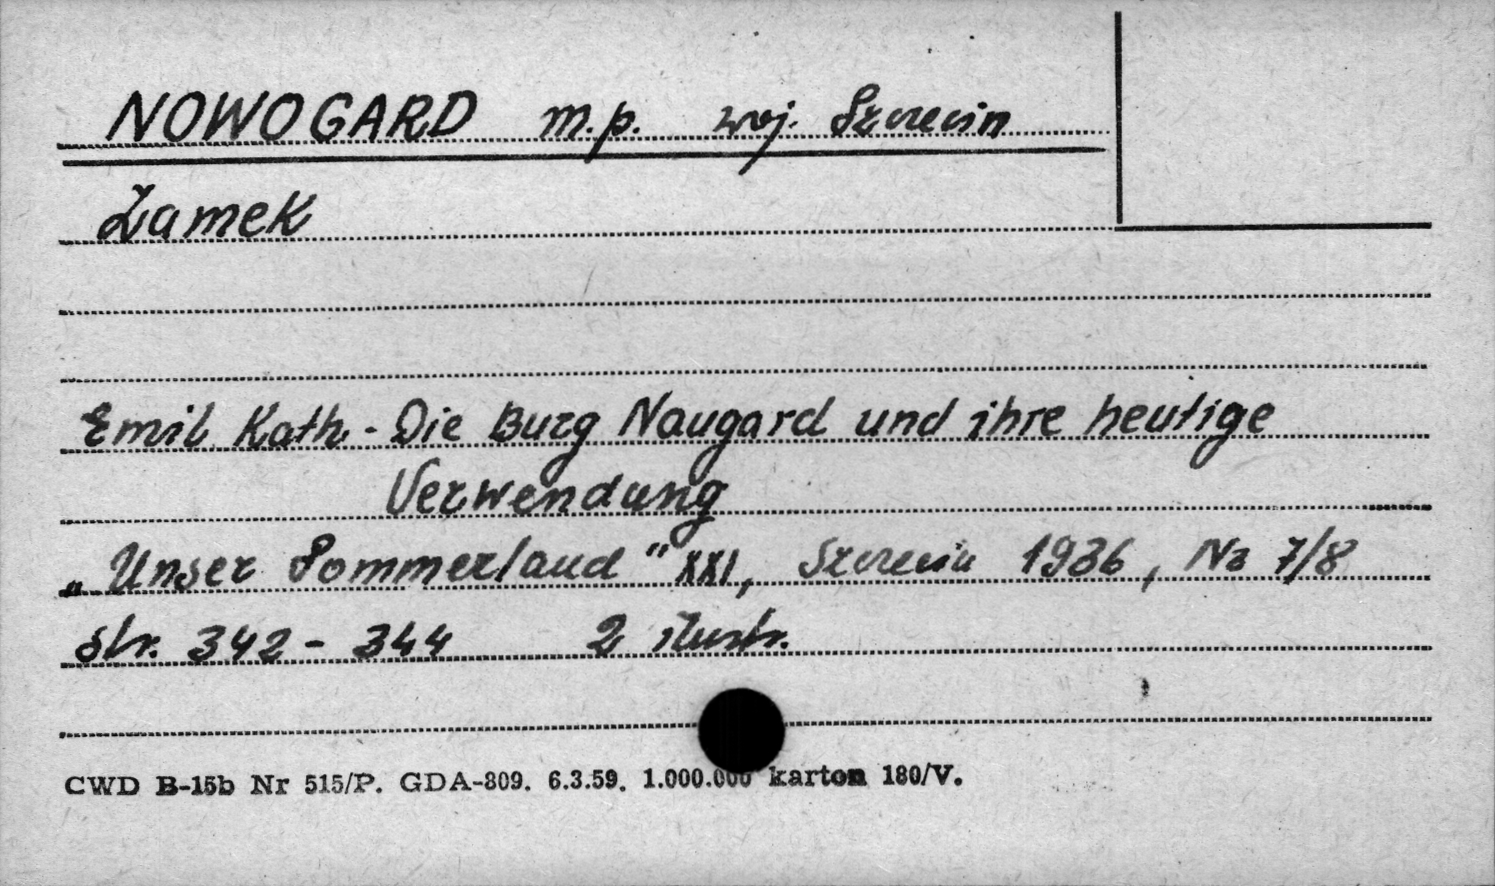 NOWOGARD m.p. woj. Szczecin
Zamek
Emil Kath - Die Burg Naugard und ihre heutige
Verwendung
„Unser Pommerland" XXI, Szczecin 1936, Nr 7/8
str. 342 - 344 2 ilustr.
CWD B-15b Nr 515/P. GDA-809. 6.3.59. 1.000.000 karton 180/V.